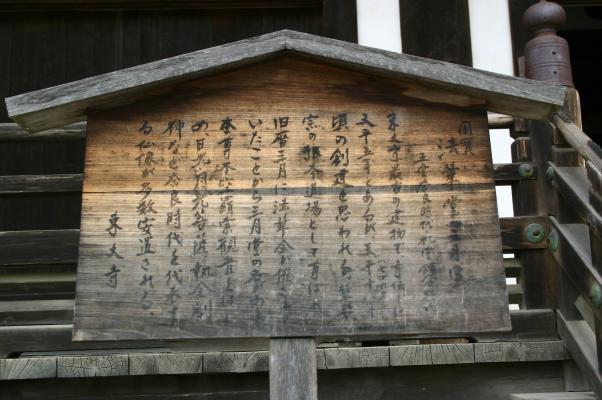 国宝 法華堂（三月堂）
正堂 奈良時代 礼堂 鎌倉時代
東大寺最古の建物で寺伝では
天平五年とあるが天平十二年
頃の創建と思われる華厳
宗の根本道場として有名
旧暦三月に法華会が催されて
いたことから三月堂の名がある
本尊不空羂索観音をはじ
め日光月光菩薩執金剛
神など奈良時代を代表す
る仏像が多数安置される
東大寺